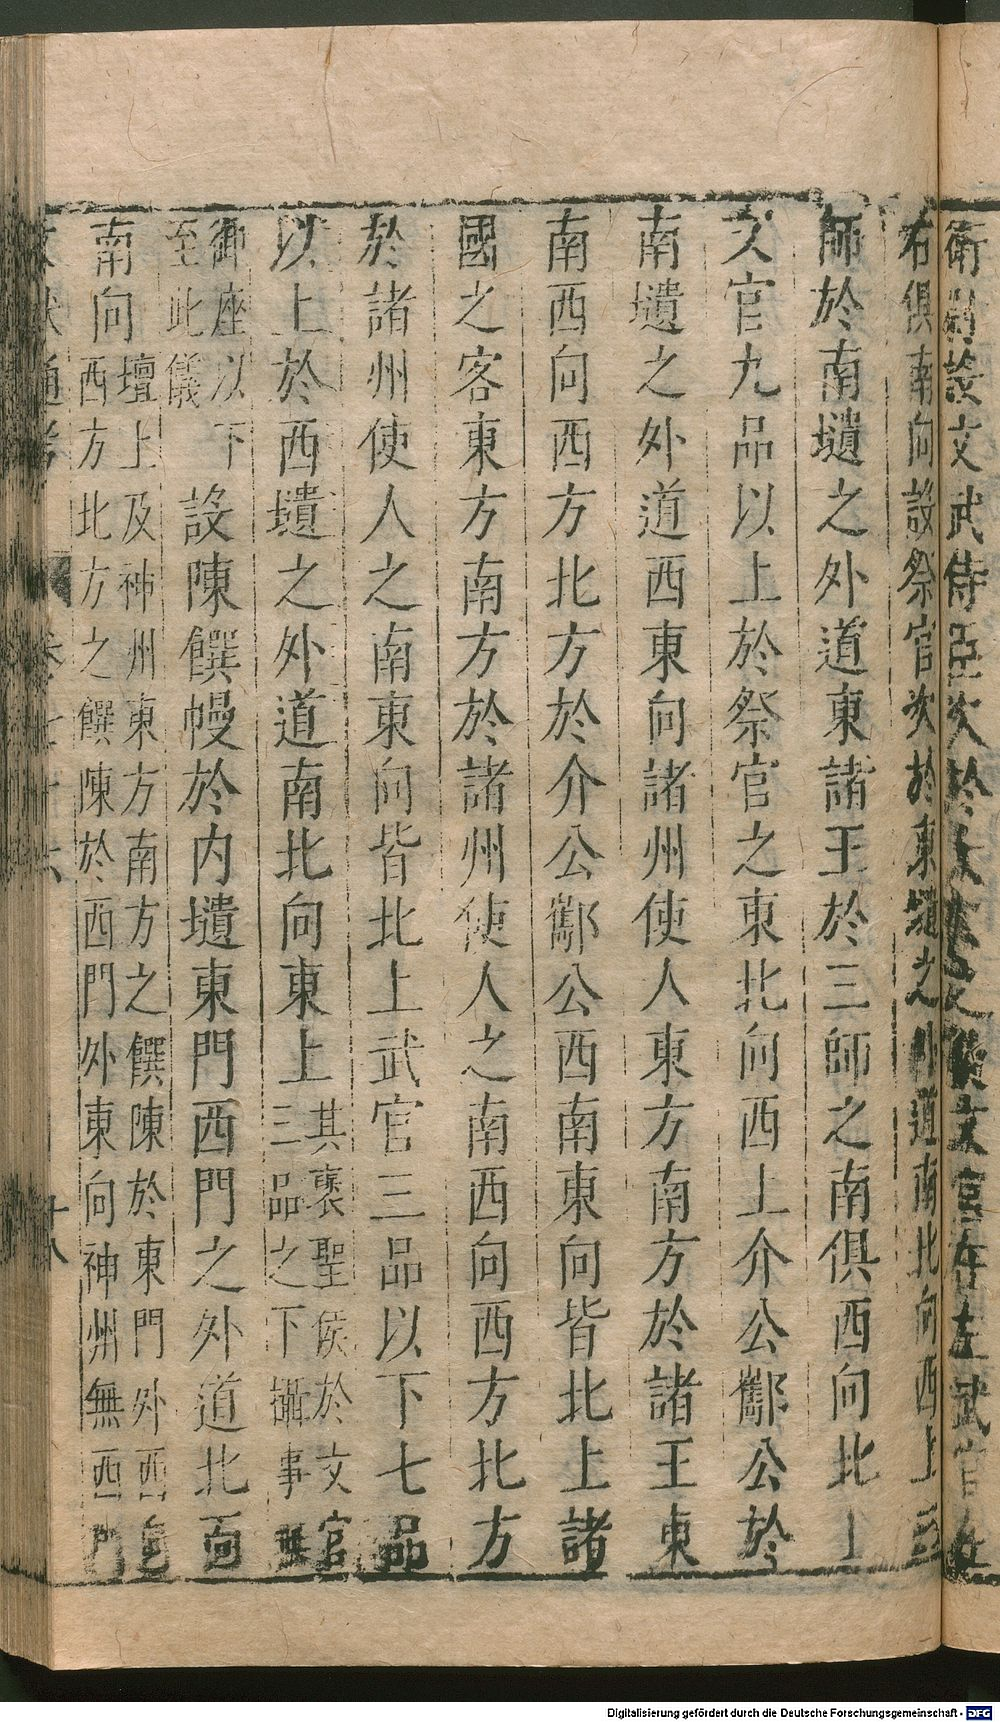 衛尉設文武侍臣次於
文官在左武官在
右俱南向設祭官次於東壝之外道南北向西上三
師於南壝之外道東諸王於三師之南俱西向北上
文官九品以上於祭官之東北向西上介公酅公於
南壝之外道西東向諸州使人東方南方於諸王東
南西向西方北方於介公酅公西南東向皆北上諸
國之客東方南方於諸州使人之南西向西方北方
於諸州使人之南東向皆北上武官三品以下七品
以上於西壝之外道南北向東上
其襃聖侯於文官
三品之下攝事無
御座以下
至此儀
設陳饌幔於内壝東門西門之外道北
南向
壇上及神州東方南方之饌陳於東門外西向
西方北方之饌陳於西門外東向神州無西門
文獻通考
卷七十六
十八
Digitalisierung gefördert durch die Deutsche Forschungsgemeinschaft - DFG